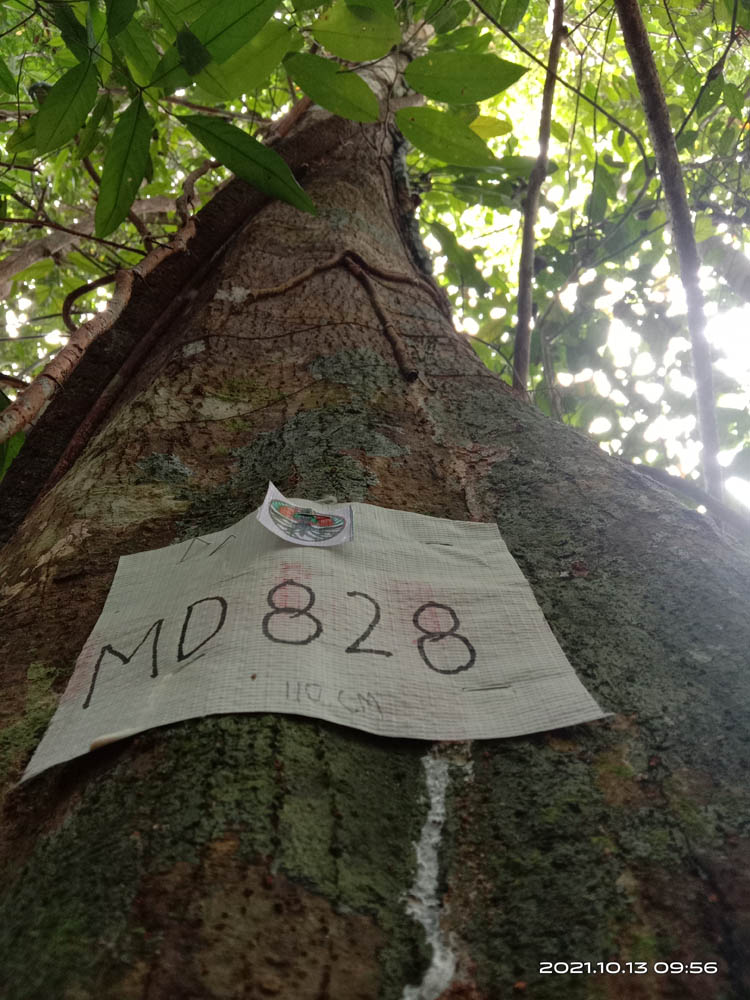 MD 828
110 CM
2021.10.13 09:56